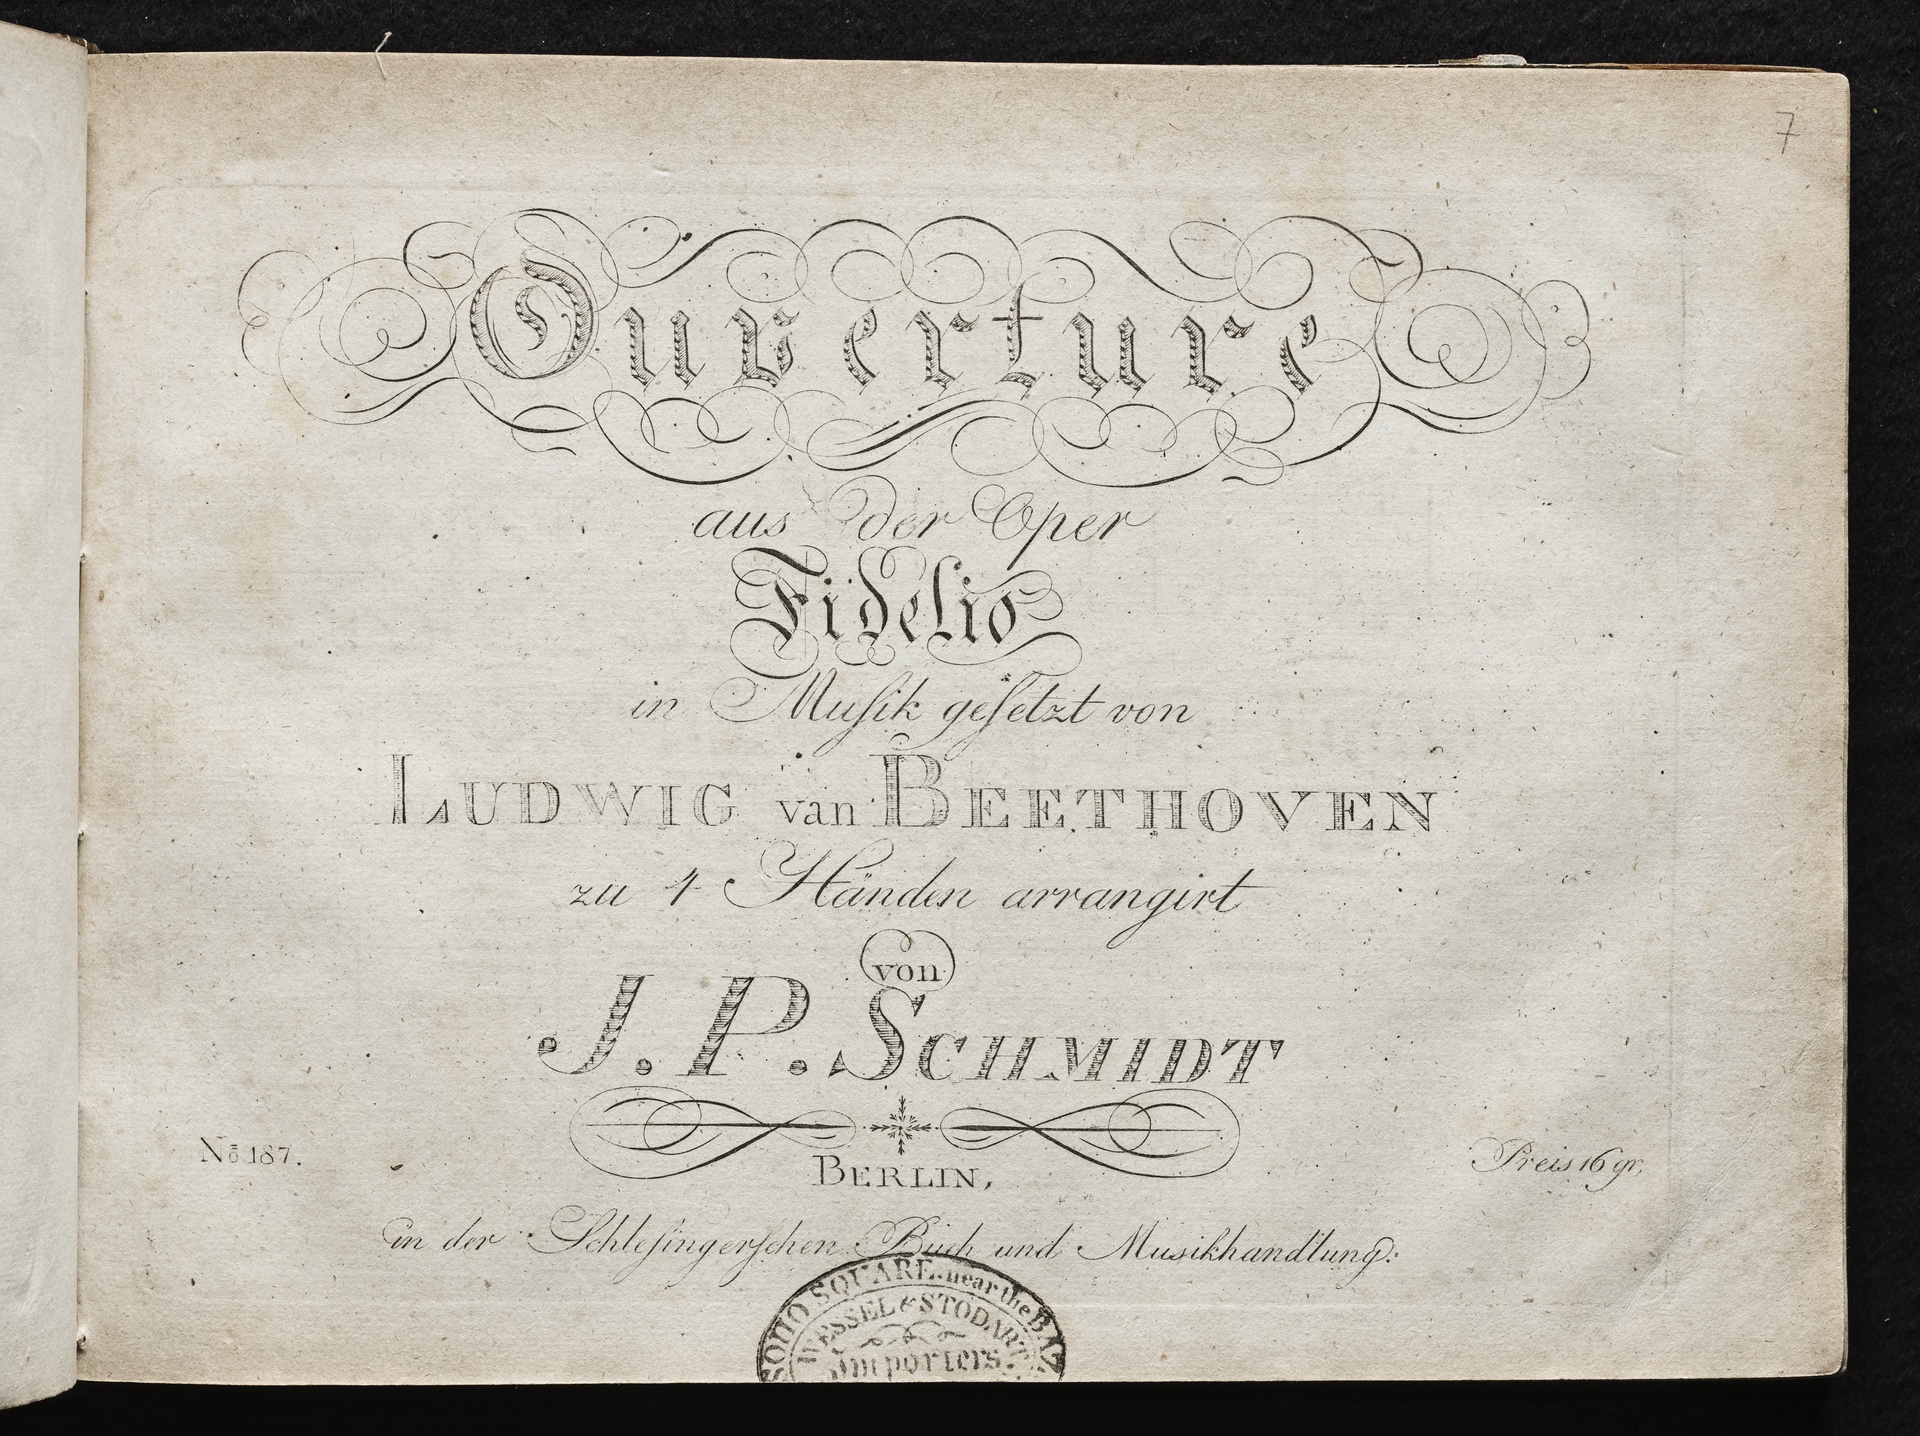 7
Ouverture
aus der Oper
Fidelio
in Muſik geſetzt von
LUDWIG van BEETHOVEN
zu 4 Händen arrangirt
von
J. P. SCHMIDT
No 187.
Preis 16 gr.
BERLIN,
in der Schleſingerſchen Buch und Musikhandlung:
SOHO SQUARE, near the BAZ
WESSEL & STODART
Importers.